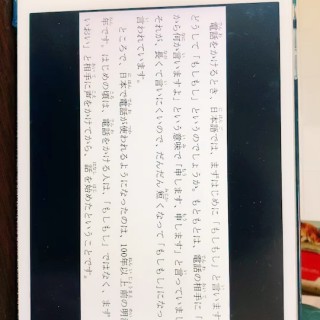 電話をかけるとき、日本語では、まずはじめに「もしもし」と言います
どうして「もしもし」というのでしょうか。もともとは、電話の相手に「
から何か言いますよ」という意味で「申します、申します」と言っていまし
それが、長くて言いにくいので、だんだん短くなって「もしもし」になっ
言われています。
ところで、日本で電話が使われるようになったのは、100年以上前の明
年です。はじめの頃は、電話をかける人は、「もしもし」ではなく、まず
いおい」と相手に声をかけてから、話を始めたということです。